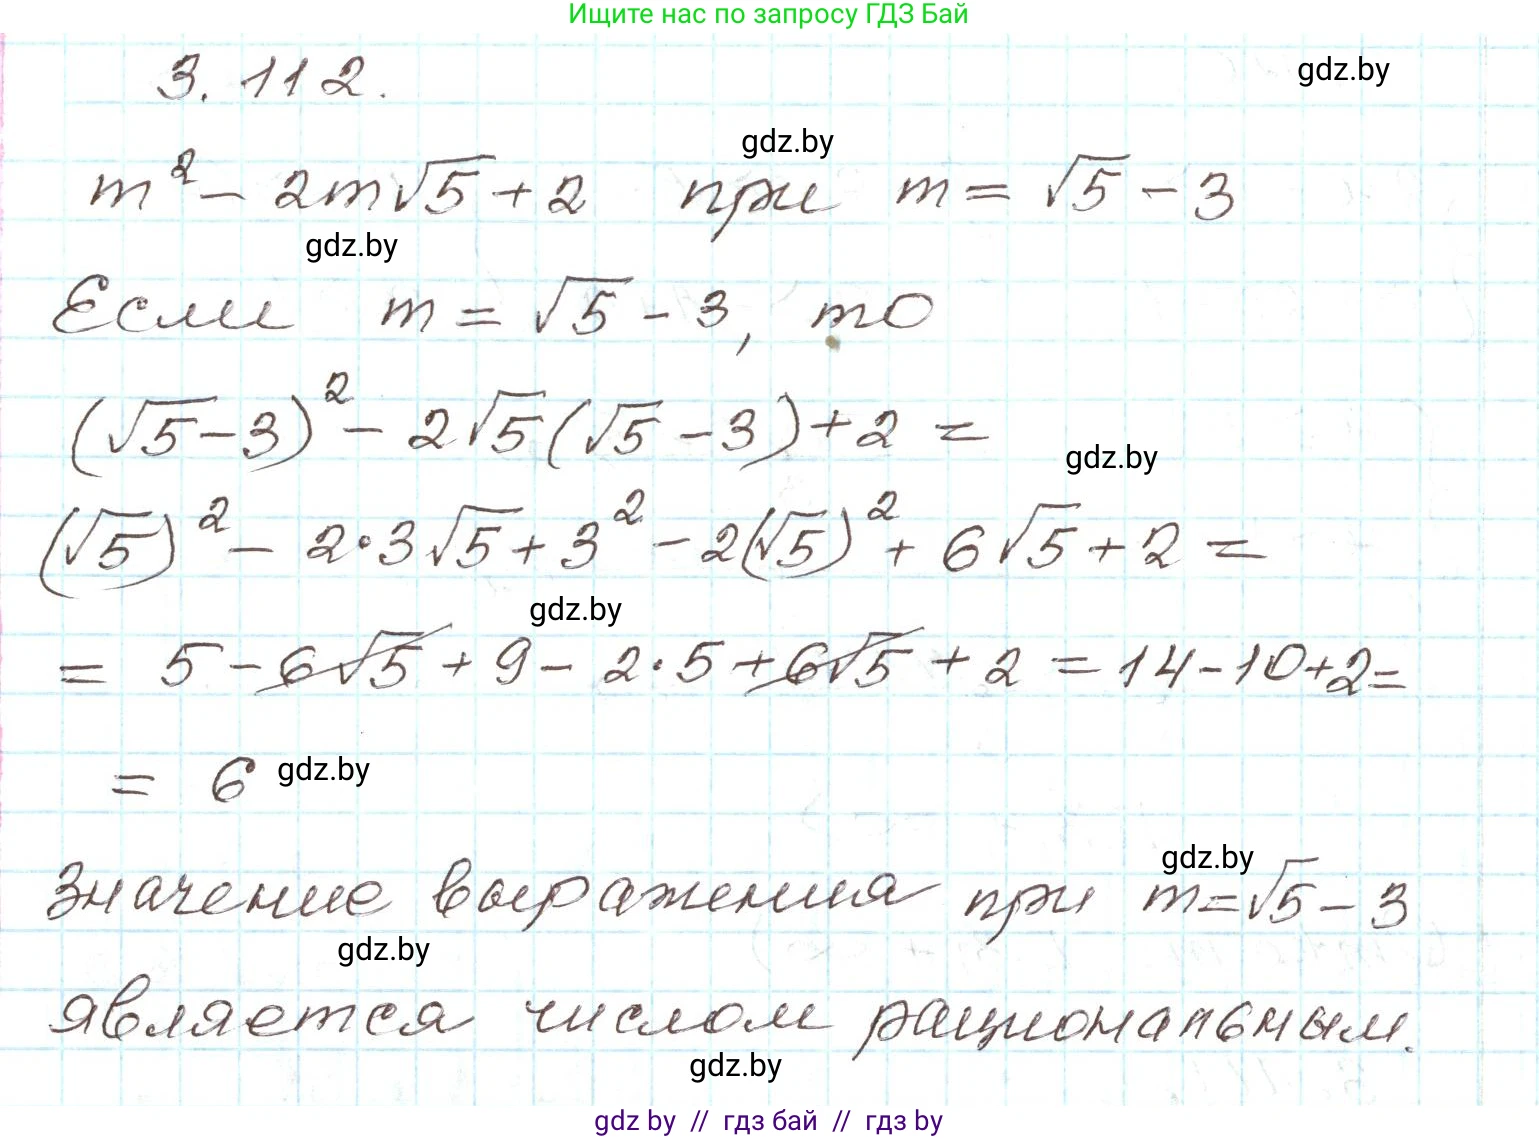 Ищите нас по запросу ГДЗ Бай
3.112.
gdz.by
gdz.by
m² - 2m√5 + 2 при m = √5 - 3
gdz.by
Если m = √5 - 3, то
(√5 - 3)² - 2√5(√5 - 3) + 2 =
gdz.by
(√5)² - 2·3√5 + 3² - 2(√5)² + 6√5 + 2 =
gdz.by
= 5 - 6√5 + 9 - 2·5 + 6√5 + 2 = 14 - 10 + 2 =
= 6 gdz.by
gdz.by
Значение выражения при m = √5 - 3
gdz.by
является числом рациональным.
gdz.by
gdz by // гдз бай // гдз by